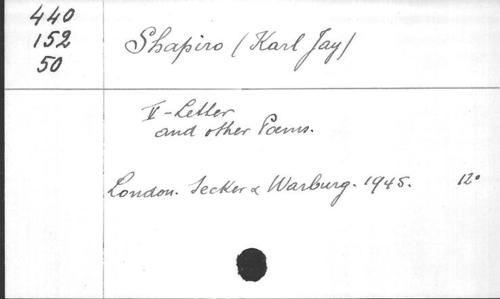 440
152
50
Shapiro (Karl Jay)
V-Letter
and other Poems.
London. Secker & Warburg. 1945. 12°